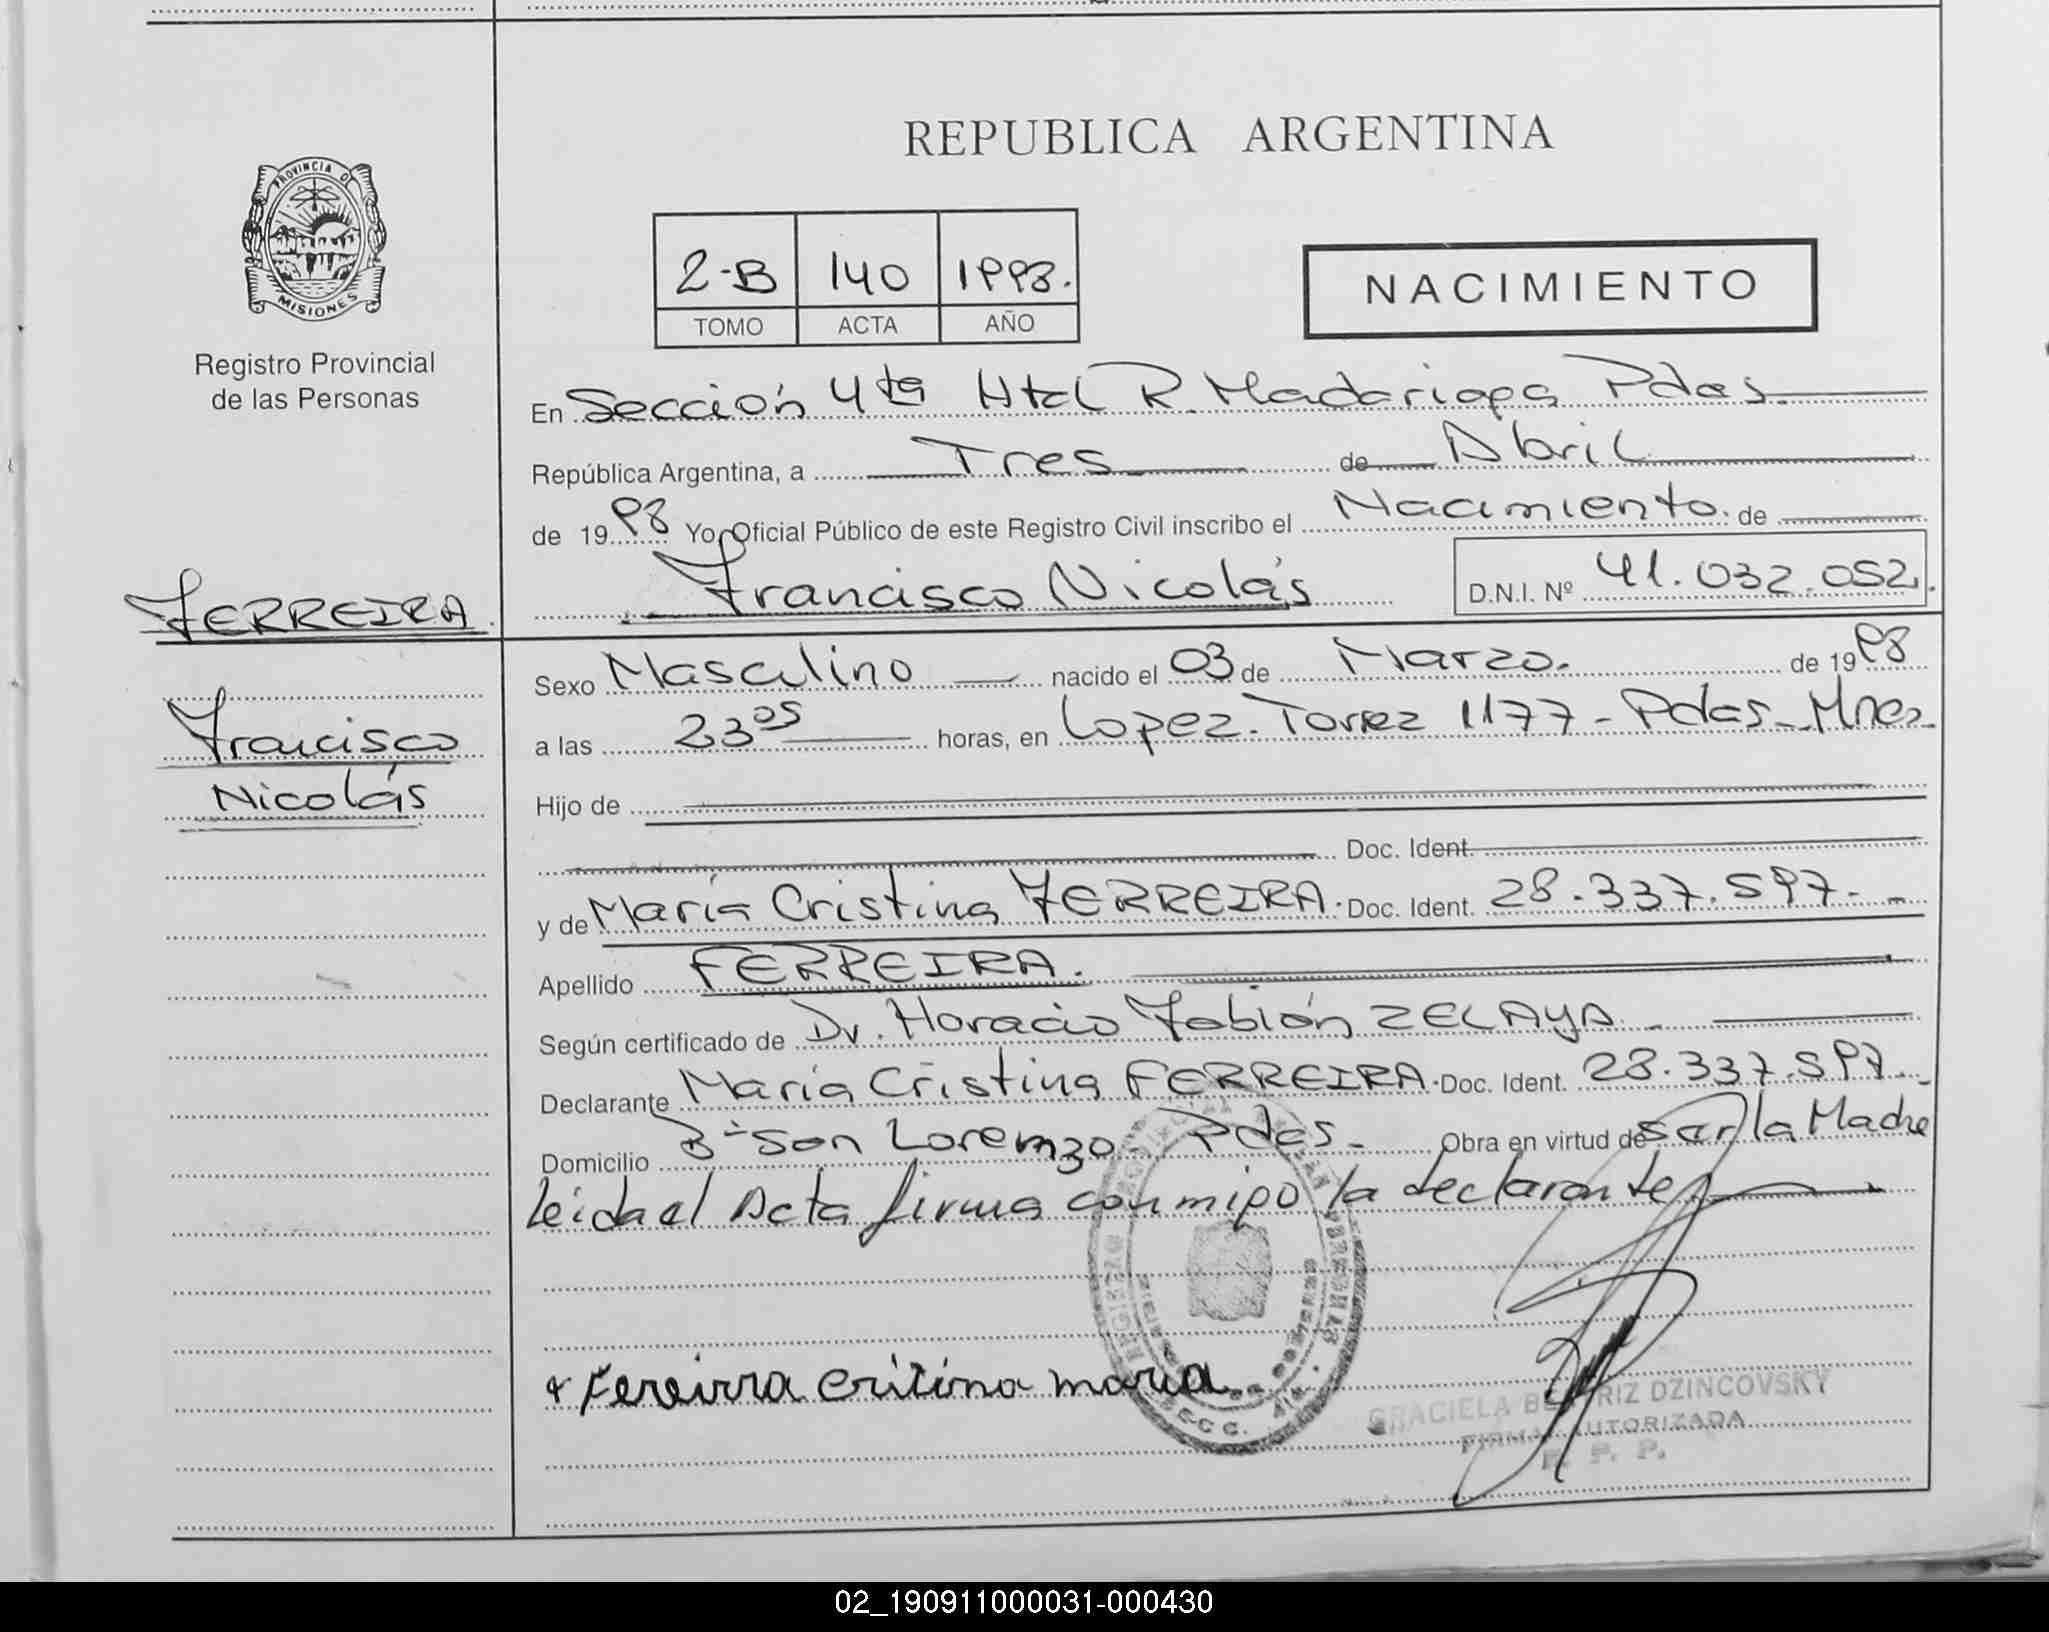 REPUBLICA ARGENTINA
PROVINCIA DE
MISIONES
Registro Provincial
de las Personas
2-B 140 1998.
TOMO ACTA AÑO
NACIMIENTO
En Sección 4ta Htal R. Madariaga Pdas.
República Argentina, a Tres de Abril
de 1998 Yo Oficial Público de este Registro Civil inscribo el Nacimiento. de
Francisco Nicolás D.N.I. Nº 41.032.052.
FERREIRA.
Francisco
Nicolás
Sexo Masculino nacido el 03 de Marzo. de 1998
a las 23 05 horas, en Lopez Torrez 1177 - Pdas - Mnes
Hijo de
Doc. Ident.
y de María Cristina FERREIRA. Doc. Ident. 28.337.597.-
Apellido FERREIRA.
Según certificado de Dr. Horacio Fabián ZELAYA
Declarante María Cristina FERREIRA. Doc. Ident. 28.337.597.-
Domicilio Bº San Lorenzo Pdas. Obra en virtud de Ser la Madre
leída el Acta firma conmigo la declarante
Fereirra critina maria
SECC. 4ta.
GRACIELA BEATRIZ DZINCOVSKY
FIRMA AUTORIZADA
R. P. P.
02_190911000031-000430